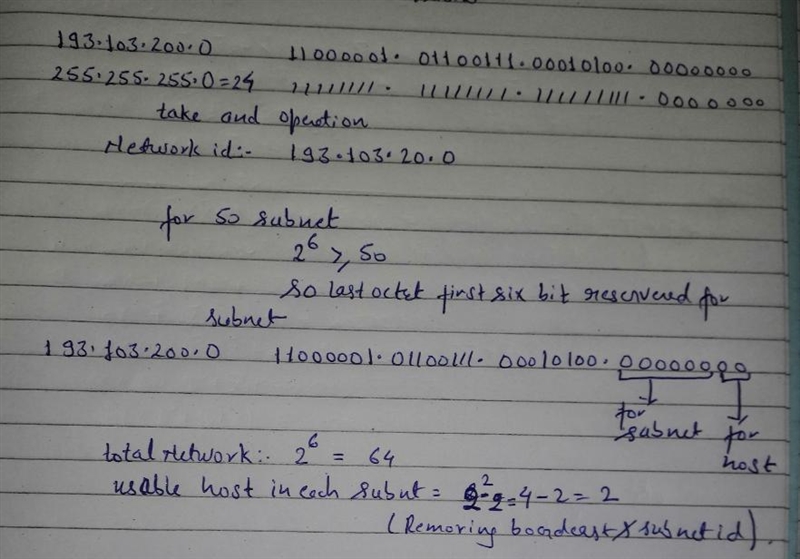 193.103.200.0 11000001. 01100111.00010100. 00000000
255.255.255.0=24 11111111. 11111111.111111111.0000000
take and operation
Network id:- 193.103.20.0
for 50 subnet
2^6 ≥ 50
so last octet first six bit rescrvered for
subnet
193.103.200.0 11000001.01100111.00010100.00000000
for
subnet for
host
total Network:- 2^6 = 64
usable host in each subnt = 2^2-2=4-2=2
(Removing boardcast & subnet id).